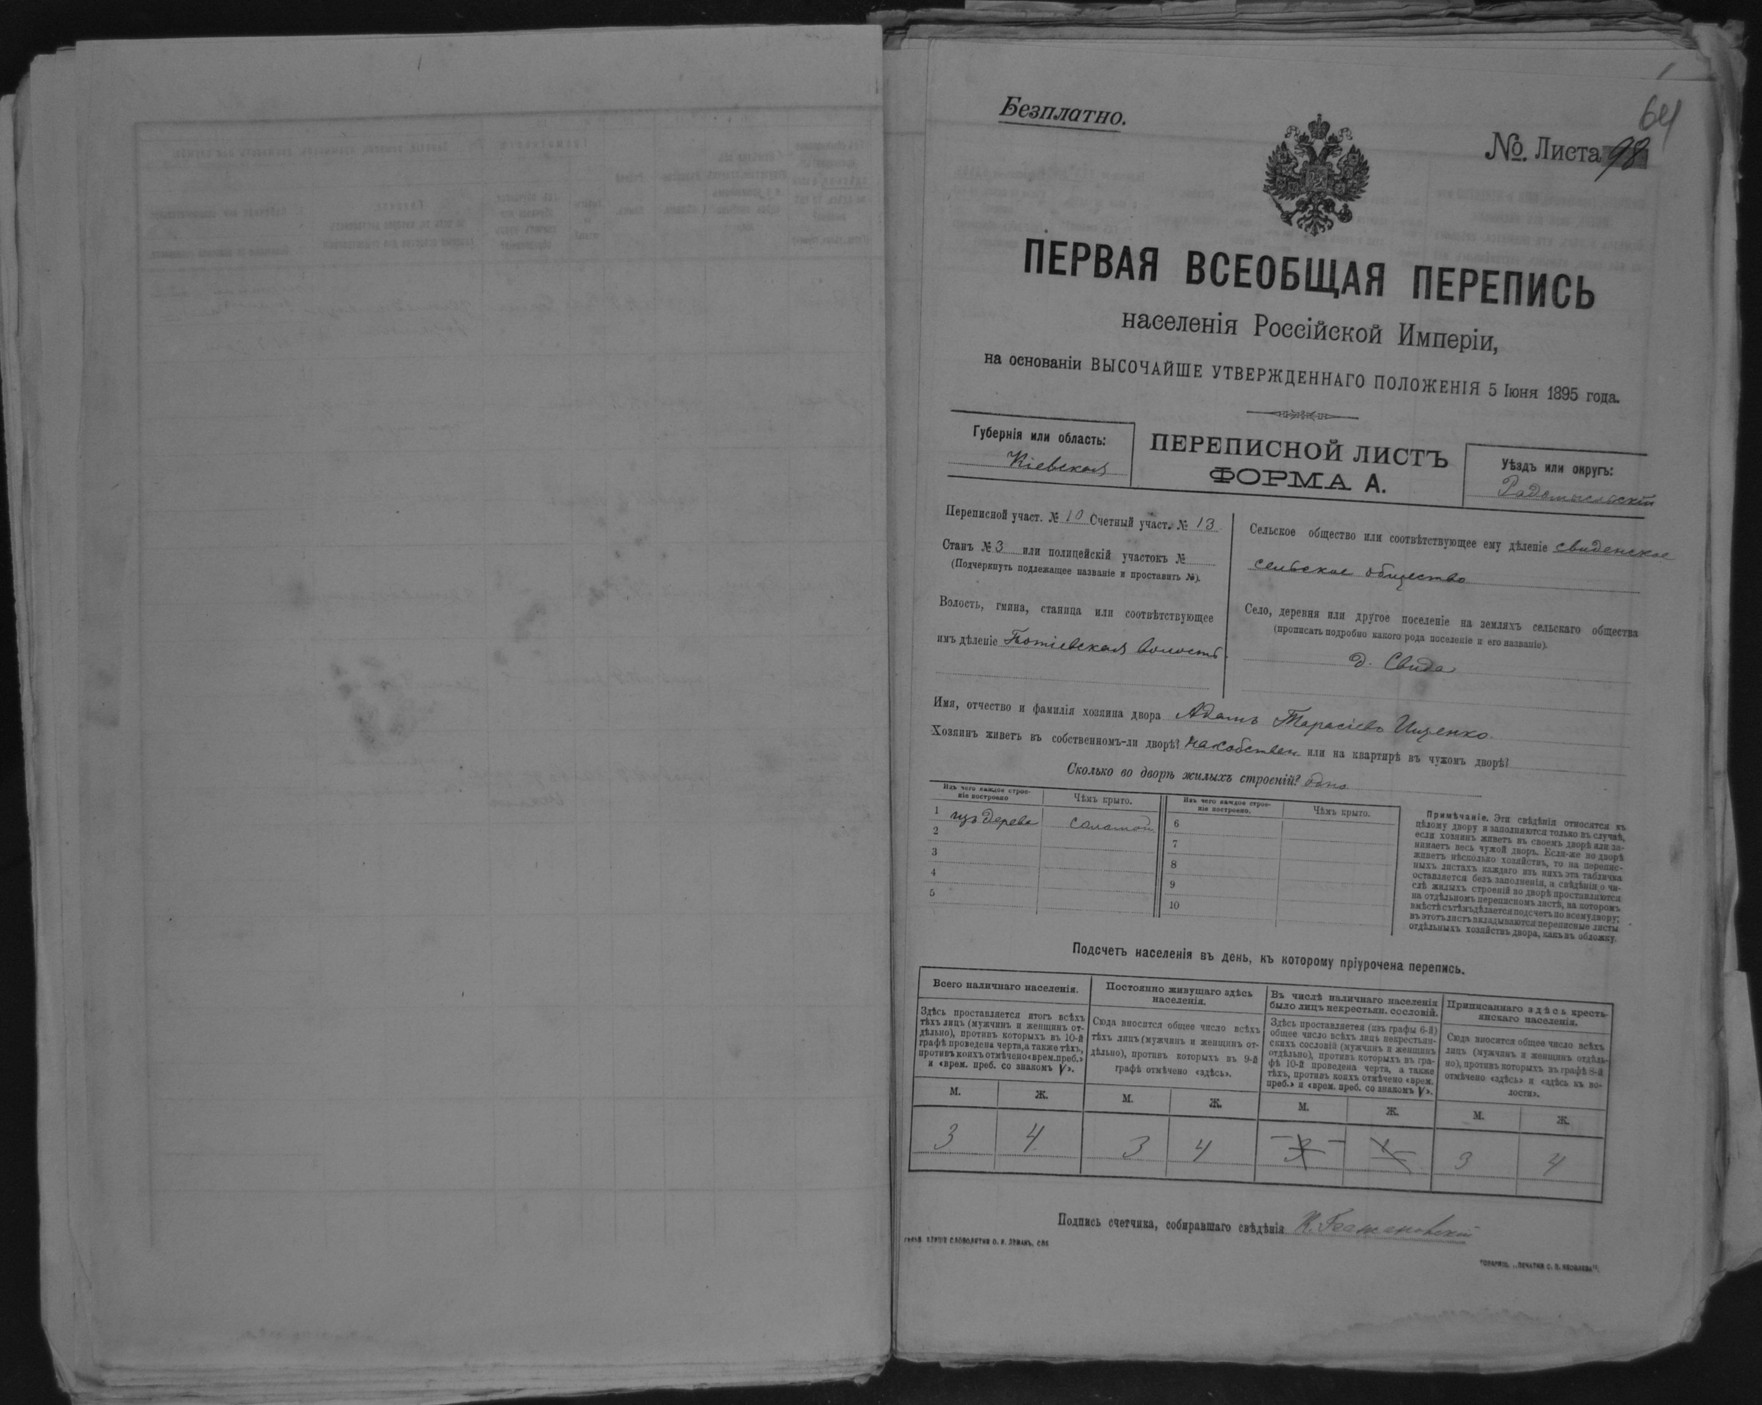 64
Безплатно.
№. Листа 98
ПЕРВАЯ ВСЕОБЩАЯ ПЕРЕПИСЬ
населенія Россійской Имперіи,
на основаніи ВЫСОЧАЙШЕ УТВЕРЖДЕННАГО ПОЛОЖЕНІЯ 5 Іюня 1895 года.
Губернія или область:
Кіевская
ПЕРЕПИСНОЙ ЛИСТЪ
ФОРМА А.
Уѣздъ или округъ:
Радомысльскій
Переписной участ. № 10 Счетный участ. № 13
Станъ № 3 или полицейскій участокъ №
(Подчеркнуть подлежащее названіе и проставить №).
Волость, гмина, станица или соотвѣтствующее
имъ дѣленіе Потіевская волость
Сельское общество или соотвѣтствующее ему дѣленіе свиденское
сельское общество
Село, деревня или другое поселеніе на земляхъ сельскаго общества
(прописать подробно какого рода поселеніе и его названіе).
д. Свида
Имя, отчество и фамилія хозяина двора Адамъ Тарасіевъ Ищенко
Хозяинъ живетъ въ собственномъ-ли дворѣ? на собствен или на квартирѣ въ чужомъ дворѣ?
Сколько во дворѣ жилыхъ строеній? одно
Изъ чего каждое строе-
ніе построено
Чѣмъ крыто.
Изъ чего каждое строе-
ніе построено.
Чѣмъ крыто.
1 изъ дерева соломой 6
2 7
3 8
4 9
5 10
Примѣчаніе. Эти свѣдѣнія относятся къ
цѣлому двору и заполняются только въ случаѣ,
если хозяинъ живетъ въ своемъ дворѣ или за-
нимаетъ весь чужой дворъ. Если-же во дворѣ
живетъ нѣсколько хозяйствъ, то на перепис-
ныхъ листахъ каждаго изъ нихъ эта табличка
оставляется безъ заполненія, а свѣдѣнія о чи-
слѣ жилыхъ строеній во дворѣ проставляются
на отдѣльномъ переписномъ листѣ, на которомъ
вмѣстѣ съ тѣмъ дѣлается подсчетъ по всему двору;
въ этотъ листъ вкладываются переписные листы
отдѣльныхъ хозяйствъ двора, какъ въ обложку.
Подсчетъ населенія въ день, къ которому пріурочена перепись.
Всего наличнаго населенія.
Здѣсь проставляется итогъ всѣхъ
тѣхъ лицъ (мужчинъ и женщинъ от-
дѣльно), противъ которыхъ въ 10-й
графѣ проведена черта, а также тѣхъ,
противъ коихъ отмѣчено «врем. преб.»
и «врем. преб. со знакомъ V».
Постоянно живущаго здѣсь
населенія.
Сюда вносится общее число всѣхъ
тѣхъ лицъ (мужчинъ и женщинъ от-
дѣльно), противъ которыхъ въ 9-й
графѣ отмѣчено «здѣсь».
Въ числѣ наличнаго населенія
было лицъ некрестьян. сословій.
Здѣсь проставляется (изъ графы 6-й)
общее число всѣхъ лицъ некрестьян-
скихъ сословій (мужчинъ и женщинъ
отдѣльно), противъ которыхъ въ гра-
фѣ 10-й проведена черта, а также
тѣхъ, противъ коихъ отмѣчено «врем.
преб.» и «врем. преб. со знакомъ V».
Приписаннаго здѣсь кресть-
янскаго населенія.
Сюда вносится общее число всѣхъ
лицъ (мужчинъ и женщинъ отдѣль-
но), противъ которыхъ въ графѣ 8-й
отмѣчено «здѣсь» и «здѣсь въ во-
лости».
М. Ж. М. Ж. М. Ж. М. Ж.
3 4 3 4 – – 3 4
Подпись счетчика, собиравшаго свѣдѣнія